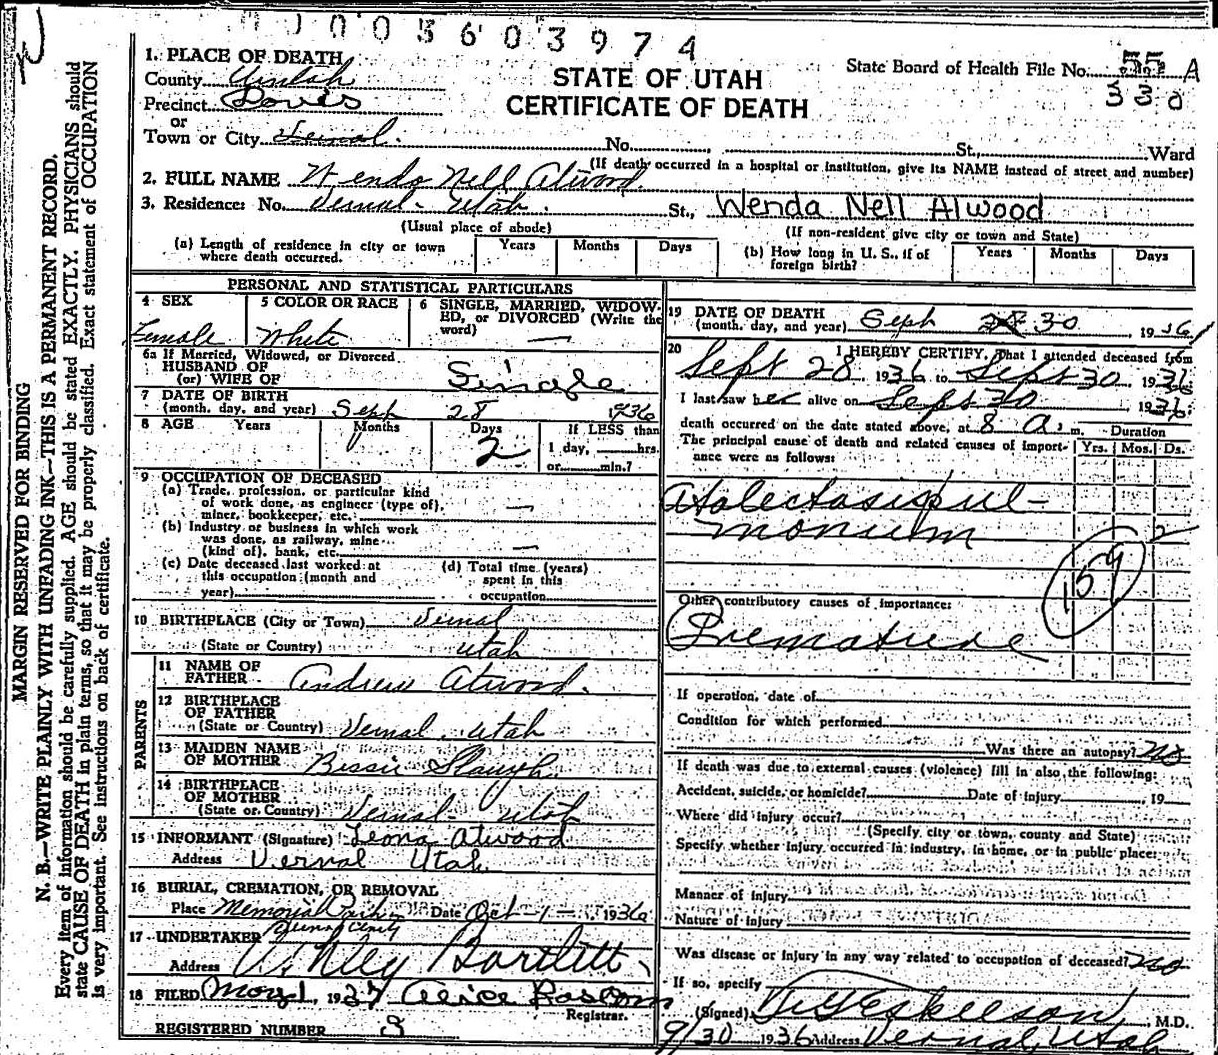 0003603974
1. PLACE OF DEATH
County Uintah
Precinct Davis
or
Town or City Vernal.
STATE OF UTAH
CERTIFICATE OF DEATH
State Board of Health File No. 55 A
330
No. St., Ward
(If death occurred in a hospital or institution, give its NAME instead of street and number)
2. FULL NAME Wenda Nell Atwood
3. Residence: No. Vernal - Utah. St., Wenda Nell Atwood
(Usual place of abode) (If non-resident give city or town and State)
(a) Length of residence in city or town where death occurred. Years Months Days
(b) How long in U. S., if of foreign birth? Years Months Days
PERSONAL AND STATISTICAL PARTICULARS
4 SEX Female
5 COLOR OR RACE White
6 SINGLE, MARRIED, WIDOWED, or DIVORCED (Write the word) —
6a If Married, Widowed, or Divorced
HUSBAND OF
(or) WIFE OF Single
7 DATE OF BIRTH
(month, day, and year) Sept 28 1936
8 AGE Years Months Days 2
If LESS than
1 day, hrs.
or min.?
9 OCCUPATION OF DECEASED
(a) Trade, profession, or particular kind
of work done, as engineer (type of),
miner, bookkeeper, etc. —
(b) Industry or business in which work
was done, as railway, mine
(kind of), bank, etc. —
(c) Date deceased last worked at
this occupation (month and
year)
(d) Total time (years)
spent in this
occupation
10 BIRTHPLACE (City or Town) Vernal
(State or Country) Utah
PARENTS
11 NAME OF
FATHER Andrew Atwood.
12 BIRTHPLACE
OF FATHER
(State or Country) Vernal, Utah
13 MAIDEN NAME
OF MOTHER Bessie Slaugh
14 BIRTHPLACE
OF MOTHER
(State or Country) Vernal - Utah
15 INFORMANT (Signature) Leona Atwood
Address Vernal Utah
16 BURIAL, CREMATION, OR REMOVAL
Place Memorial Park Date Oct - 1 - 1936
17 UNDERTAKER
Address Ashley Bartlett
18 FILED May 1, 1937 Alice
Registrar.
REGISTERED NUMBER 3
19 DATE OF DEATH
(month, day, and year) Sept 30, 1936
20 I HEREBY CERTIFY, That I attended deceased from
Sept 28 1936 to Sept 30 1936
I last saw her alive on Sept 30, 1936
death occurred on the date stated above, at 8 A. m. Duration
The principal cause of death and related causes of importance were as follows: Yrs. Mos. Ds.
Atalectasis pul-
monum 2
159
Other contributory causes of importance:
Premature
If operation, date of
Condition for which performed
Was there an autopsy? No
If death was due to external causes (violence) fill in also the following:
Accident, suicide, or homicide? Date of injury , 19
Where did injury occur?
(Specify city or town, county and State)
Specify whether injury occurred in industry, in home, or in public place:
Manner of injury
Nature of injury
Was disease or injury in any way related to occupation of deceased? No
If so, specify
(Signed) Eskelson, M.D.
9/30 1936 Address Vernal, Utah
MARGIN RESERVED FOR BINDING
N. B.—WRITE PLAINLY WITH UNFADING INK—THIS IS A PERMANENT RECORD.
Every item of information should be carefully supplied. AGE should be stated EXACTLY. PHYSICIANS should
state CAUSE OF DEATH in plain terms, so that it may be properly classified. Exact statement of OCCUPATION
is very important. See instructions on back of certificate.